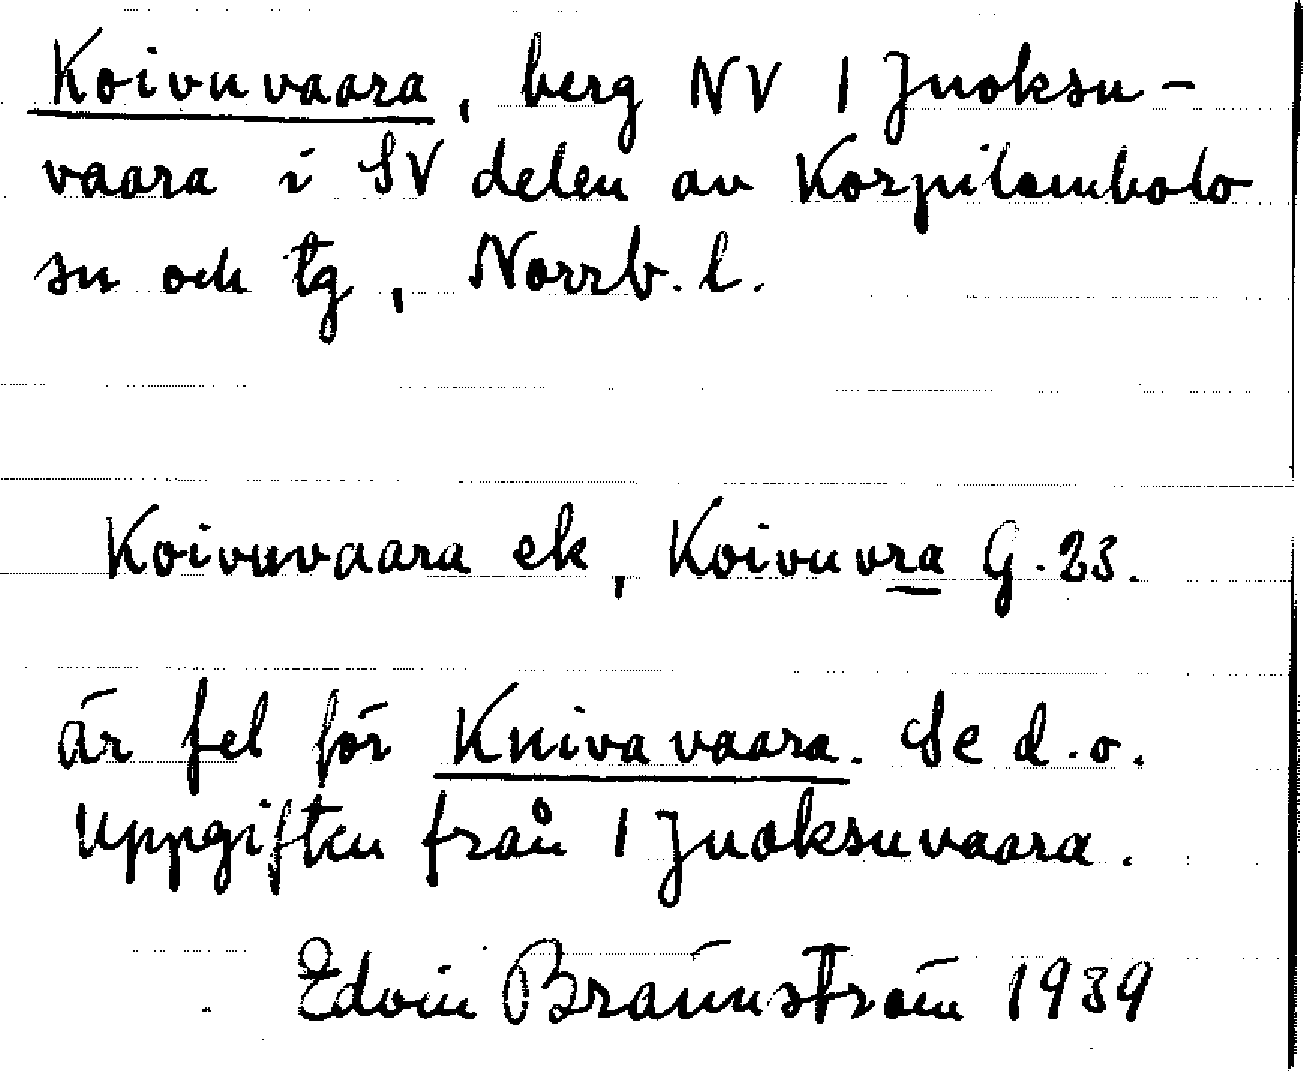 Koivuvaara, berg NV 1 Juoksu-
vaara i SV delen av Korpilombolo
sn och tg, Norrb. l.
Koivuvaara ek, Koivuvra G. 23.
är fel för Knivavaara. Se d.o.
Uppgiften från 1 Juoksuvaara.
Edvin Brännström 1939